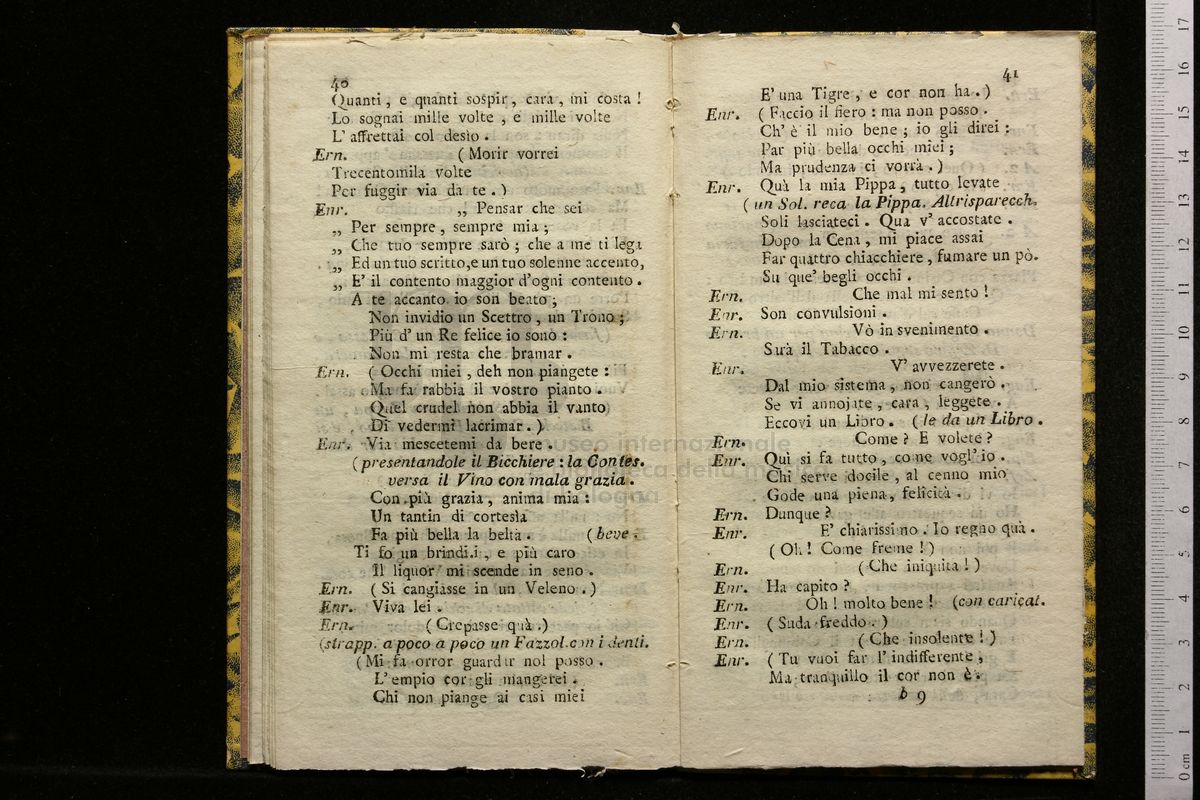 40
Quanti, e quanti sospir, cara, mi costa!
Lo sognai mille volte, e mille volte
L'affrettai col desio.
Ern. (Morir vorrei
Trecentomila volte
Per fuggir via da te.)
Enr. „ Pensar che sei
„ Per sempre, sempre mia;
„ Che tuo sempre sarò; che a me ti lega
„ Ed un tuo scritto, e un tuo solenne accento,
„ E' il contento maggior d'ogni contento.
A te accanto io son beato;
Non invidio un Scettro, un Trono;
Più d' un Re felice io sono:
Non mi resta che bramar.
Ern. (Occhi miei, deh non piangete:
Ma fa rabbia il vostro pianto.
Quel crudel non abbia il vanto
Di vedermi lacrimar.)
Enr. Via mescetemi da bere.
(presentandole il Bicchiere: la Contes.
versa il Vino con mala grazia.
Con più grazia, anima mia:
Un tantin di cortesìa
Fa più bella la beltà. (beve.
Ti fo un brindisi, e più caro
Il liquor mi scende in seno.
Ern. (Si cangiasse in un Veleno.)
Enr. Viva lei.
Ern. (Crepasse quà.)
(strapp. a poco a poco un Fazzol. con i denti.
(Mi fa orror guardar nol posso.
L'empio cor gli mangerei.
Chi non piange ai casi miei
41
E' una Tigre, e cor non ha.)
Enr. (Faccio il fiero: ma non posso.
Ch' è il mio bene; io gli direi:
Par più bella occhi miei;
Ma prudenza ci vorrà.)
Enr. Quà la mia Pippa, tutto levate
(un Sol. reca la Pippa. Altri sparecch.
Soli lasciateci. Qua v' accostate.
Dopo la Cena, mi piace assai
Far quattro chiacchiere, fumare un pò.
Su que' begli occhi.
Ern. Che mal mi sento!
Enr. Son convulsioni.
Ern. Vò in svenimento.
Sarà il Tabacco.
Enr. V' avvezzerete.
Dal mio sistema, non cangerò.
Se vi annojate, cara, leggete.
Eccovi un Libro. (le da un Libro.
Ern. Come? E volete?
Enr. Quì si fa tutto, come vogl' io.
Chi serve docile, al cenno mio
Gode una piena, felicità.
Ern. Dunque?
Enr. E' chiarissimo. Io regno quà.
(Oh! Come freme!)
Ern. (Che iniquità!)
Enr. Ha capito?
Ern. Oh! molto bene! (con caricat.
Enr. (Suda freddo.)
Ern. (Che insolente!)
Enr. (Tu vuoi far l' indifferente,
Ma tranquillo il cor non è.
b 9
museo internazionale
biblioteca della musica
bologna
17
16
15
14
13
12
11
10
9
8
7
6
5
4
3
2
1
0 cm